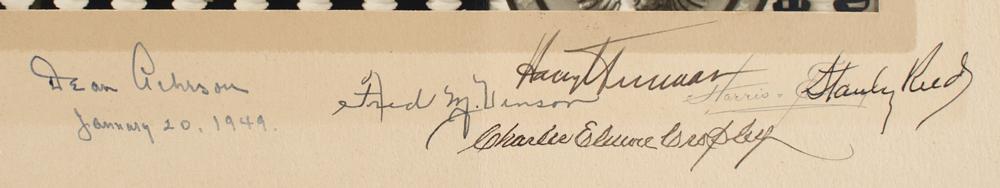 Dean Acheson
January 20, 1949.
Fred M. Vinson
Harry Truman
Harris
Stanley Reed
Charles Elmore Cropley